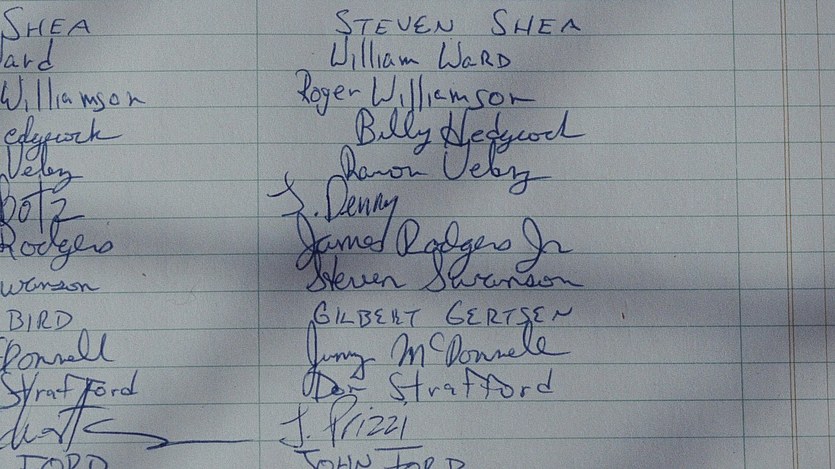 SHEA STEVEN SHEA
ard William WARD
Williamson Roger Williamson
edgycock Billy Hedgycock
Velez Ramon Velez
BOTZ J. Denny
Rodgers James Rodgers Jr
wanson Steven Swanson
BIRD GILBERT GERTSEN
Donnell Jimmy McDonnell
Strafford Don Strafford
J. Prizzi
FORD JOHN FORD